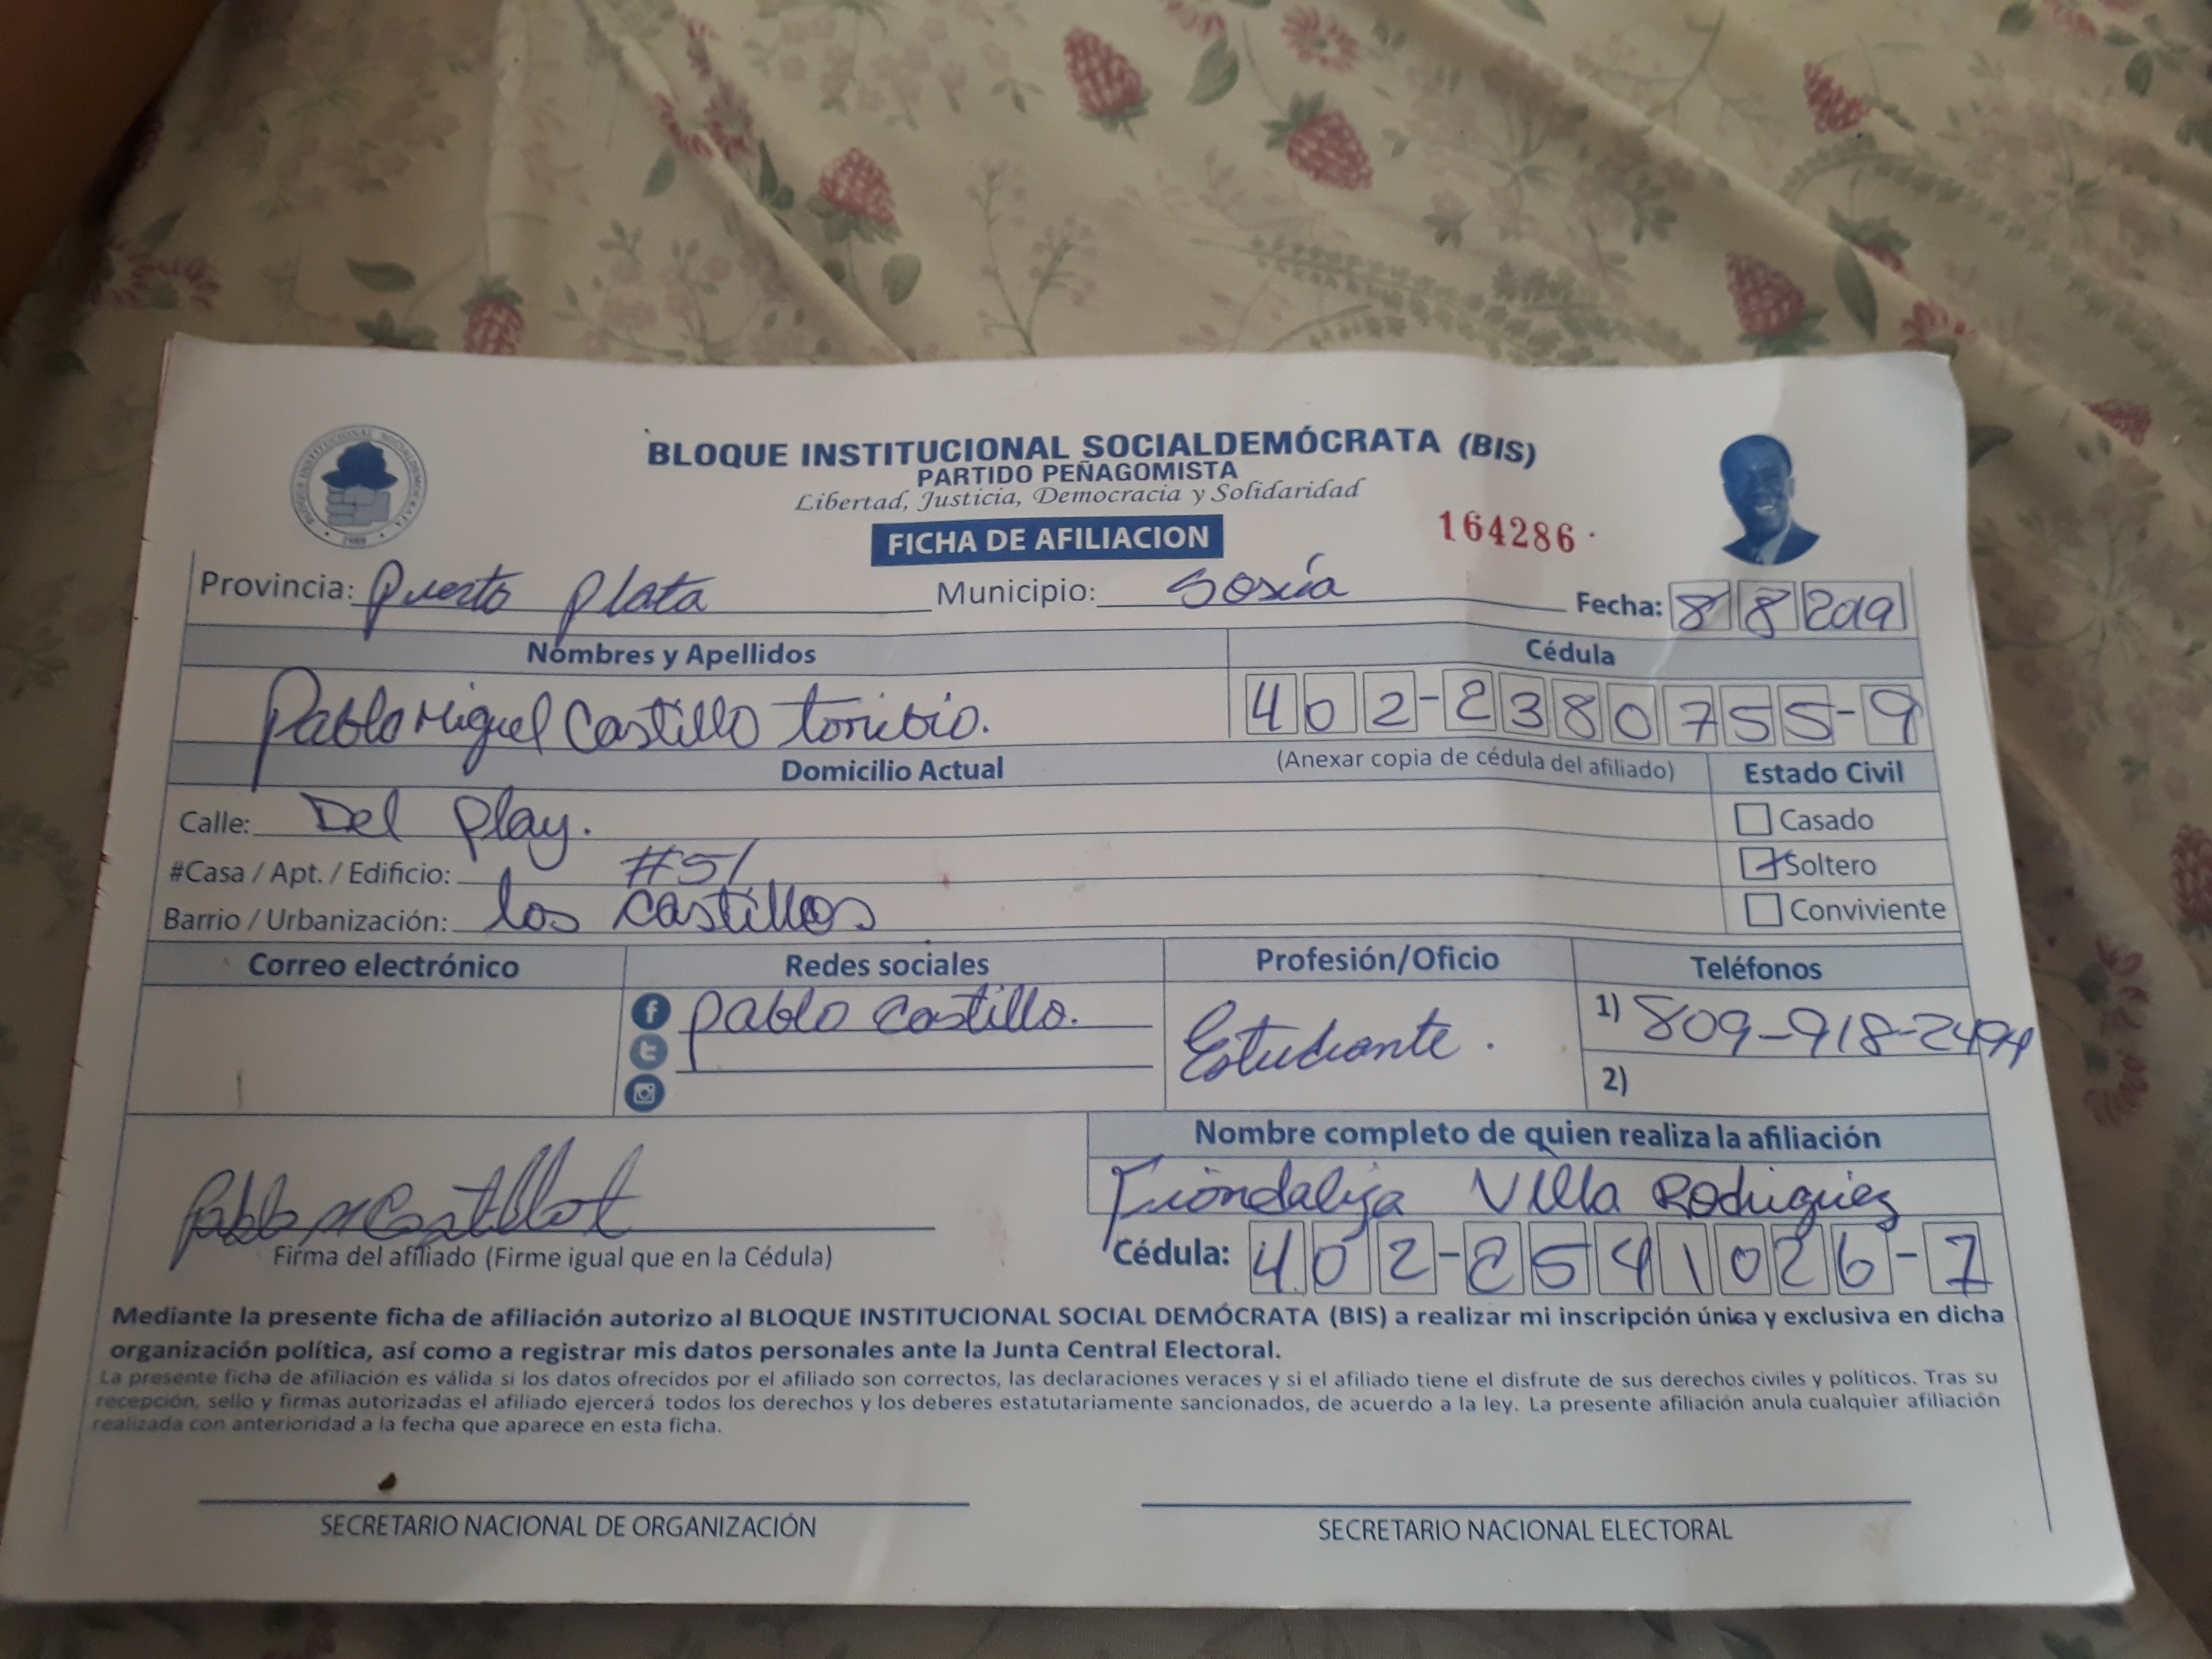 BLOQUE INSTITUCIONAL SOCIALDEMÓCRATA (BIS)
PARTIDO PEÑAGOMISTA
Libertad, Justicia, Democracia y Solidaridad
FICHA DE AFILIACION
164286
BLOQUE INSTITUCIONAL SOCIALDEMOCRATA
1989
Provincia: Puerto Plata Municipio: Sosúa Fecha: 8 8 2019
Nombres y Apellidos Cédula
Pablo Miguel Castillo toribio. 402-2380755-9
Domicilio Actual (Anexar copia de cédula del afiliado) Estado Civil
Calle: Del play. Casado
#Casa / Apt. / Edificio: #51 Soltero
Barrio / Urbanización: los castillos Conviviente
Correo electrónico Redes sociales Profesión/Oficio Teléfonos
pablo castillo. Estudiante. 1) 809-918-2494
2)
Nombre completo de quien realiza la afiliación
Villa Rodriguez
Pablo M Castillo t
Firma del afiliado (Firme igual que en la Cédula) Cédula: 402-2541026-7
Mediante la presente ficha de afiliación autorizo al BLOQUE INSTITUCIONAL SOCIAL DEMÓCRATA (BIS) a realizar mi inscripción única y exclusiva en dicha
organización política, así como a registrar mis datos personales ante la Junta Central Electoral.
La presente ficha de afiliación es válida si los datos ofrecidos por el afiliado son correctos, las declaraciones veraces y si el afiliado tiene el disfrute de sus derechos civiles y políticos. Tras su
recepción, sello y firmas autorizadas el afiliado ejercerá todos los derechos y los deberes estatutariamente sancionados, de acuerdo a la ley. La presente afiliación anula cualquier afiliación
realizada con anterioridad a la fecha que aparece en esta ficha.
SECRETARIO NACIONAL DE ORGANIZACIÓN SECRETARIO NACIONAL ELECTORAL